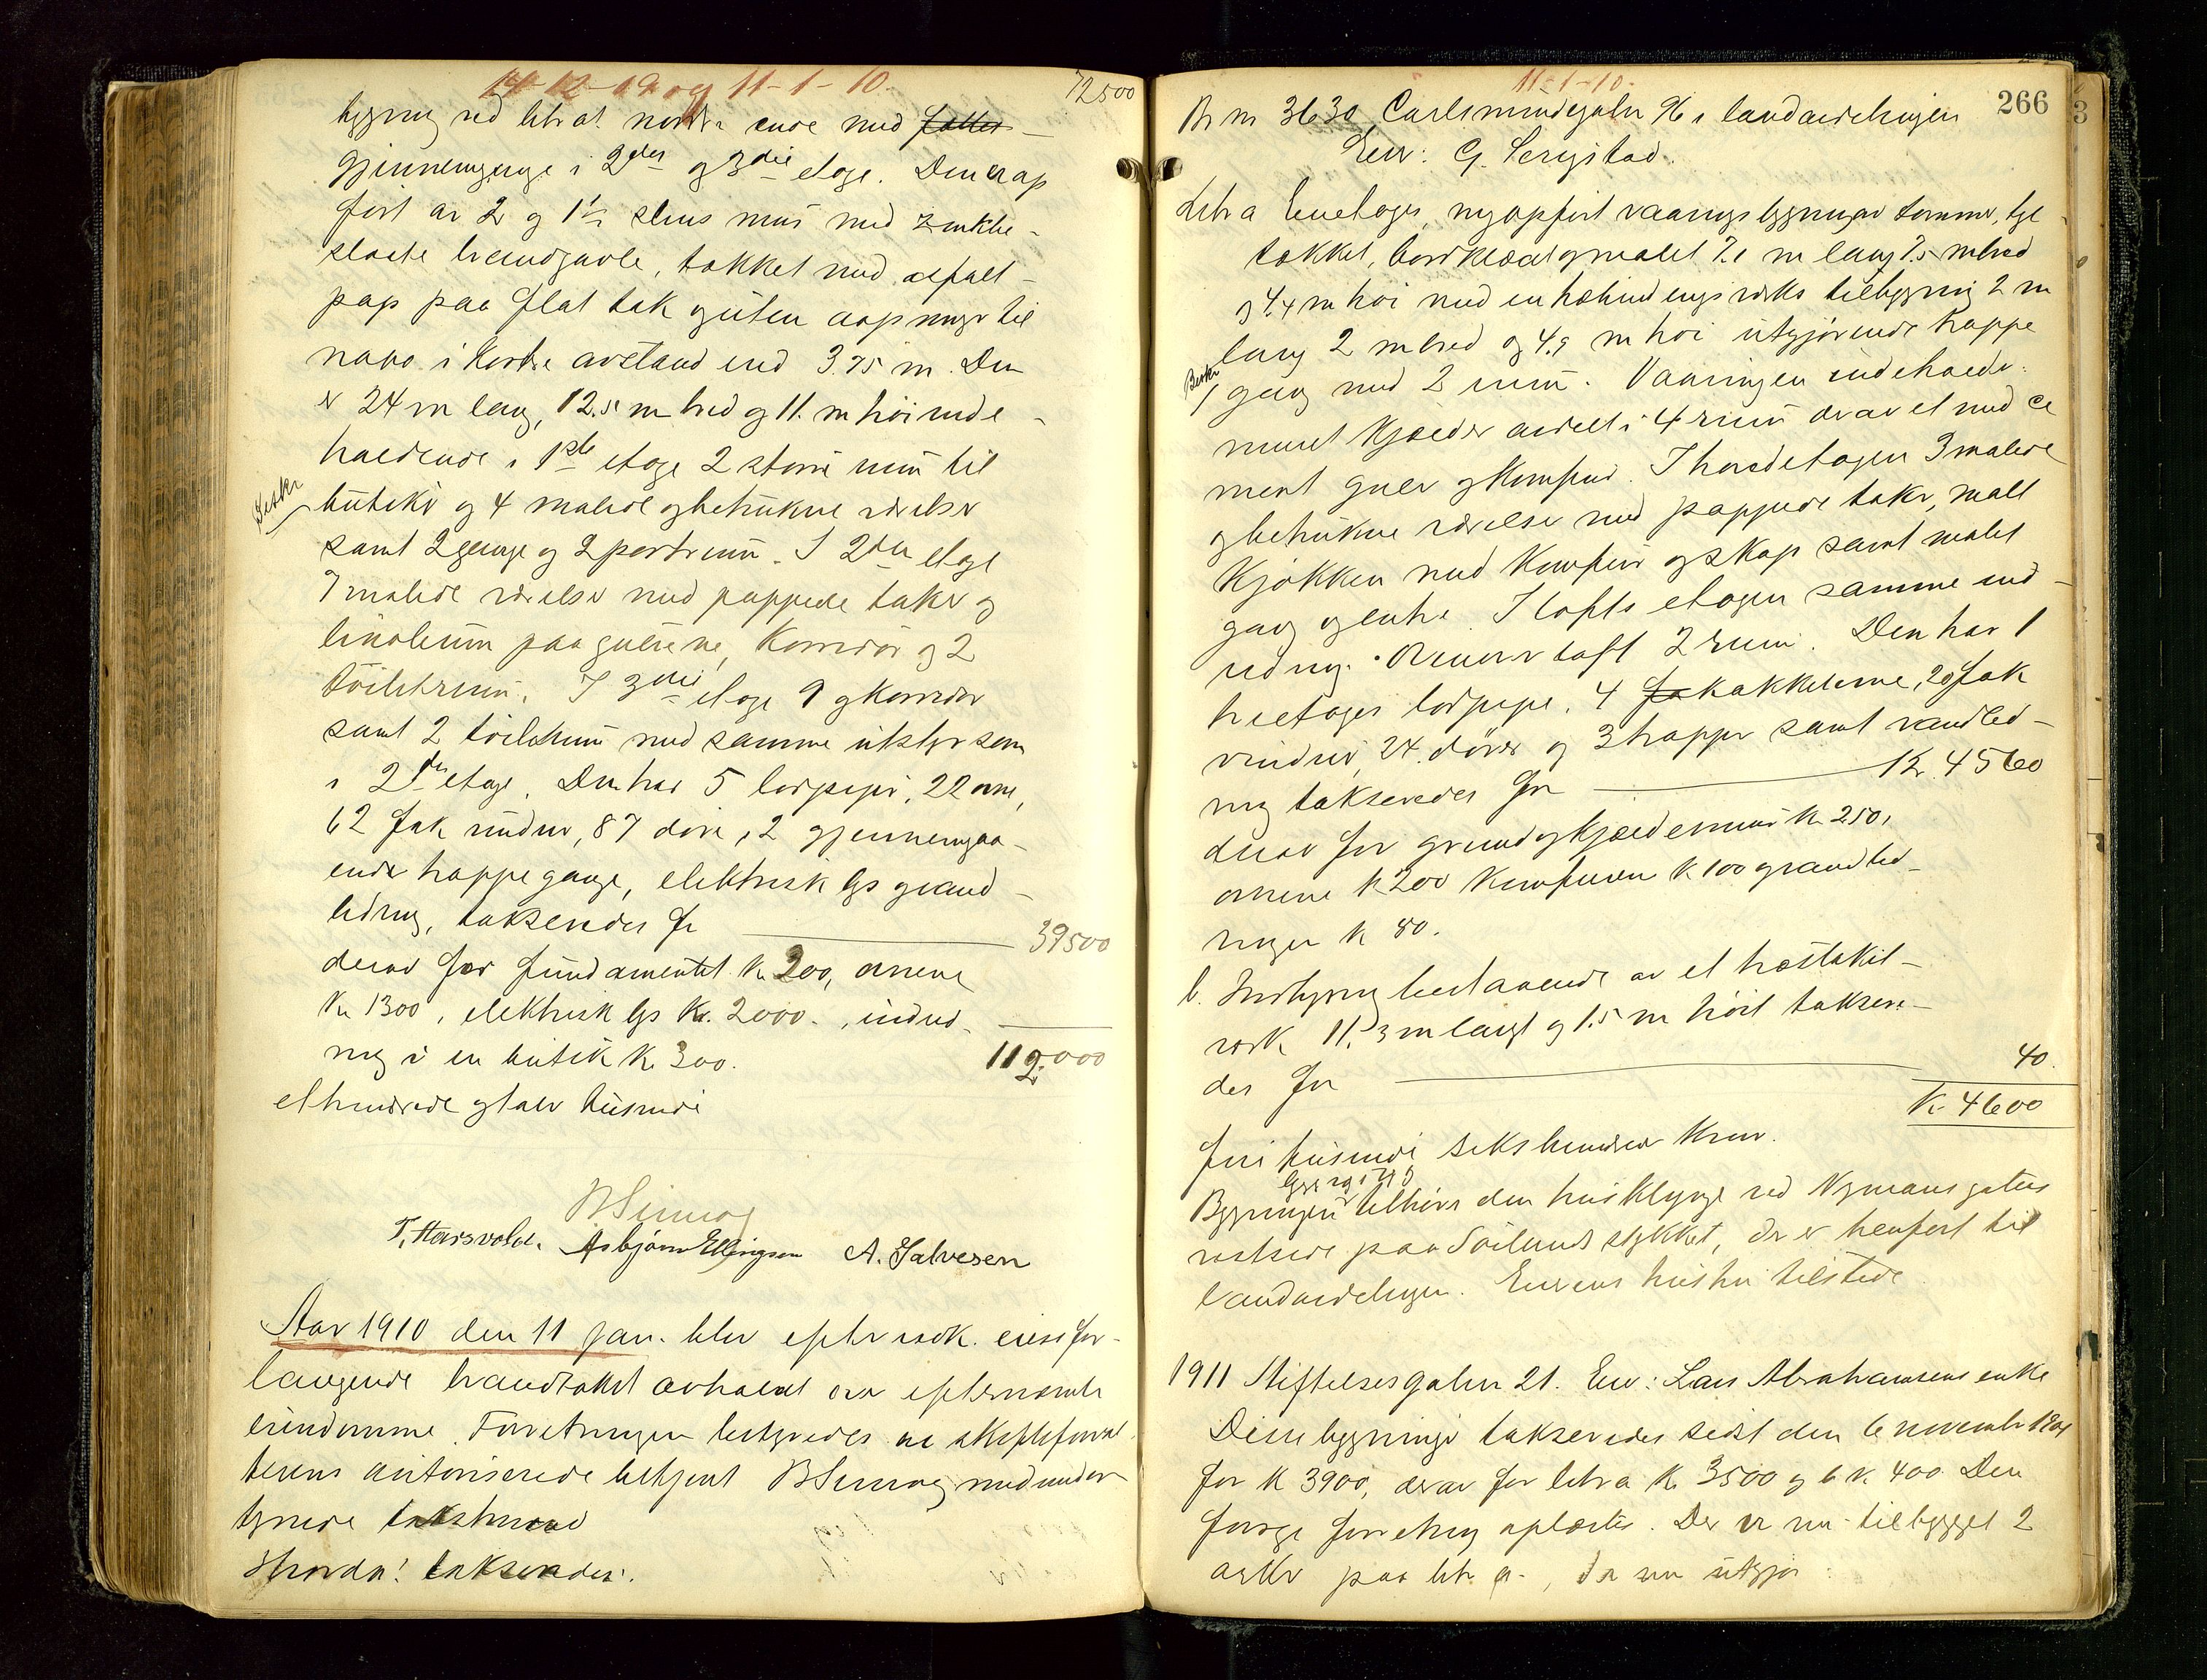 14-12-09 og 11-1-10.
72500
bygning ved litr a's nordre ende med fælles
gjennemgange i 2den og 3die etage. Den er op
ført av 2 og 1½ stens mur med zinkbe-
slaaede brandgavle, tækket med asfalt-
pap paa flat tak og uten aapninger til
nabo i kortere avstand end 3.75 m. Den
er 24 m lang, 12.5 m bred og 11. m høi inde-
holdende i 1ste etage 2 større rum til
Beskr
butiker og 4 malede og betrukne værelser
samt 2 gange og 2 portrum. I 2den etage
7 malede værelser med pappede taker og
linoleum paa gulvene, korridor og 2
toiletrum. I 3die etage 9 og korridor
samt 2 toiletrum med samme utstyr som
i 2den etage. Den har 5 lodpiper, 22 ovne,
62 fak vinduer, 87 døre, 2 gjennemgaa-
ende trappegange, elektrisk lys og vand-
ledning, takseredes for 39500
derav for fundamentet kr. 200, ovnene
Kr 1300, elektrisk lys Kr. 2000., indred-
ning i en butik K. 300. 112.000
et hundrede og tolv tusinde
B Sinnag
T. Harsvold. Asbjørn Ellingsen A. Salvesen
Aar 1910 den 11 jan. blev efter vedk. eieres for-
langende brandtakst avholdt over efternævnte
eiendomme. Forretningen bestyredes av skifteforval-
terens autoriserede betjent B Sinnag med under-
tegnede takstmænd
Hvorda! takseredes:
11-1-10.
266
3
Br nr 3630 Carlsmindegaten 96 i landavdelingen
Eier: G. Sergstad.
Litr a Enetages, nyopført vaaningsbygning av tømmer, tegl
tækket, bordklædt og malet 7.1 m lang 7.5 m bred
og 4.4 m høi med en bekvemmelighets tilbygning 2 m
lang 2 m bred og 4.9 m høi utgjørende trappe
Beskr
gang med 2 rum. Vaaningen indeholder:
muret kjælder avdelt i 4 rum derav et med ce
ment gulv og komfur. I hovedetagen 3 malede
og betrukne værelser med pappede taker, malt
kjøkken med komfur og skap samt malet
gang og entre. I loftsetagen samme ind-
redning. Øverst loft 2 rum. Den har 1
treetages lodpipe, 4 fa kakkelovne, 20 fak
vinduer, 24 dører og 3 trapper samt vandled-
ning takseredes for Kr. 4560
derav for grund og kjældermur k 250,
ovnene k 200 komfuren k 100 og vandled-
ningen k 80.
b. Indhegning bestaaende av et træstakit-
verk 11.3 m langt og 1.5 m høit taksere-
des for 40.
K. 4600
fire tusinde seks hundrede kroner.
Bygningen tilhører den husklynge ved Nymansgatens
vestside paa Söilunds stykket, der er henført til
landavdelingen. Eierens hustru tilstede
1911 Stiftelsesgaten 21. Eier: Lars Abrahamsens enke
Disse bygninger takseredes sidst den 6 november 1901
for k 3900, derav for litr a k. 3500 og b k. 400. Den
forrige forretning oplæstes. Der er nu tilbygget 2
arker paa litr a., der nu utgjør: